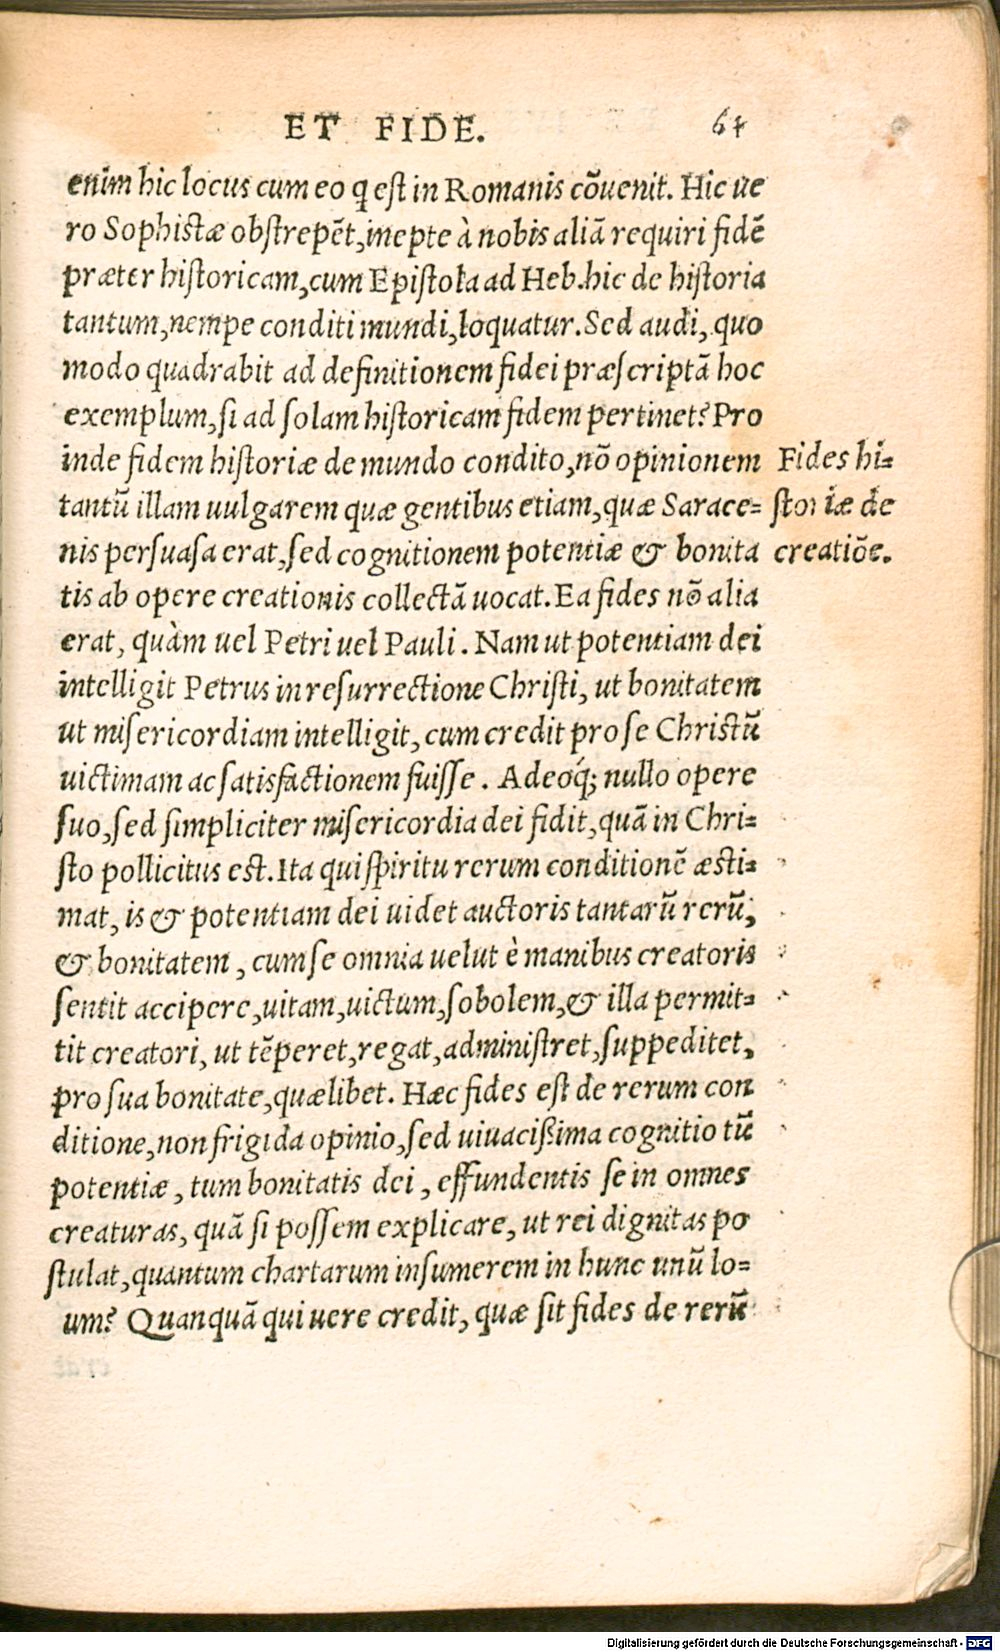 ET FIDE. 64
enim hic locus cum eo q est in Romanis cōuenit. Hic ue
ro Sophistæ obstrepēt, inepte à nobis aliā requiri fidē
præter historicam, cum Epistola ad Heb. hic de historia
tantum, nempe conditi mundi, loquatur. Sed audi, quo
modo quadrabit ad definitionem fidei præscriptā hoc
exemplum, si ad solam historicam fidem pertinet? Pro
inde fidem historiæ de mundo condito, nō opinionem
tantū illam uulgarem quæ gentibus etiam, quæ Sarace-
nis persuasa erat, sed cognitionem potentiæ & bonita
tis ab opere creationis collectā uocat. Ea fides nō alia
erat, quàm uel Petri uel Pauli. Nam ut potentiam dei
intelligit Petrus in resurrectione Christi, ut bonitatem
ut misericordiam intelligit, cum credit pro se Christū
uictimam ac satisfactionem fuisse. Adeóq; nullo opere
suo, sed simpliciter misericordia dei fidit, quā in Chri-
sto pollicitus est. Ita qui spiritu rerum conditionē æsti-
mat, is & potentiam dei uidet auctoris tantarū rerū,
& bonitatem, cum se omnia uelut è manibus creatoris
sentit accipere, uitam, uictum, sobolem, & illa permit-
tit creatori, ut tēperet, regat, administret, suppeditet,
pro sua bonitate, quælibet. Hæc fides est de rerum con
ditione, non frigida opinio, sed uiuacißima cognitio tū
potentiæ, tum bonitatis dei, effundentis se in omnes
creaturas, quā si possem explicare, ut rei dignitas po
stulat, quantum chartarum insumerem in hunc unū lo-
um? Quanquā qui uere credit, quæ sit fides de rerū
Fides hi-
storiæ de
creatiōe.
Digitalisierung gefördert durch die Deutsche Forschungsgemeinschaft - DFG